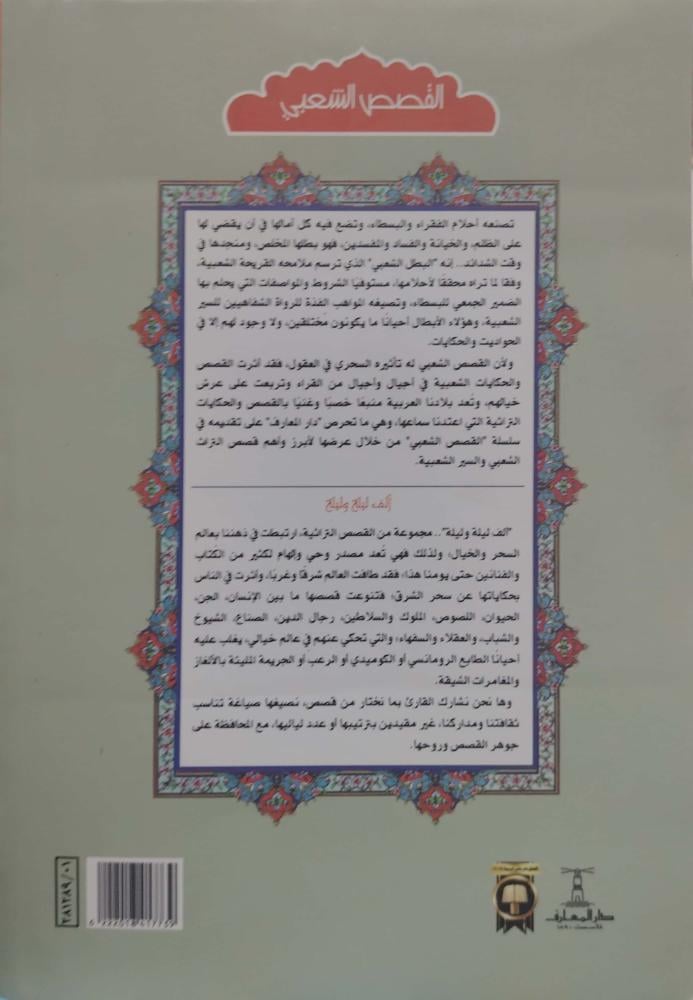 القصص الشعبي
تصنعه أحلام الفقراء والبسطاء، وتضع فيه كل آمالها في أن يقضي لها
على الظلم، والخيانة والفساد والمفسدين، فهو بطلها المخلص، ومنجدها في
وقت الشدائد.. إنه "البطل الشعبي" الذي ترسم ملامحه القريحة الشعبية،
وفقا لما تراه محققًا لأحلامها، مستوفيًا الشروط والمواصفات التي يحلم بها
الضمير الجمعي للبسطاء، وتصيغه المواهب الفذة للرواة الشفاهيين للسير
الشعبية، وهؤلاء الأبطال أحيانًا ما يكونون مُختلقين، ولا وجود لهم إلا في
الحواديت والحكايات.
ولأن القصص الشعبي له تأثيره السحري في العقول، فقد أثرت القصص
والحكايات الشعبية في أجيال وأجيال من القراء وتربعت على عرش
خيالهم، وتُعد بلادنا العربية منبعًا خصبًا وغنيًا بالقصص والحكايات
التراثية التي اعتدنا سماعها، وهي ما تحرص "دار المعارف" على تقديمه في
سلسلة "القصص الشعبي" من خلال عرضها لأبرز وأهم قصص التراث
الشعبي والسير الشعبية.
ألف ليلة وليلة
"ألف ليلة وليلة".. مجموعة من القصص التراثية، ارتبطت في ذهننا بعالم
السحر والخيال؛ ولذلك فهي تُعد مصدر وحي وإلهام لكثير من الكتاب
والفنانين حتى يومنا هذا؛ فقد طافت العالم شرقًا وغربًا، وأثرت في الناس
بحكاياتها عن سحر الشرق؛ فتنوعت قصصها ما بين الإنسان، الجن،
الحيوان، اللصوص، الملوك والسلاطين، رجال الدين، الصناع، الشيوخ
والشباب، والعقلاء والسفهاء؛ والتي تحكي عنهم في عالم خيالي، يغلب عليه
أحيانًا الطابع الرومانسي أو الكوميدي أو الرعب أو الجريمة المليئة بالألغاز
والمغامرات الشيقة.
وها نحن نشارك القارئ بما نختار من قصص، نصيغها صياغة تناسب
ثقافتنا ومداركنا، غير مقيدين بترتيبها أو عدد لياليها، مع المحافظة على
جوهر القصص وروحها.
٢٨١٢٨٩/٠١
دار المعارف
تأسست ١٨٩٠